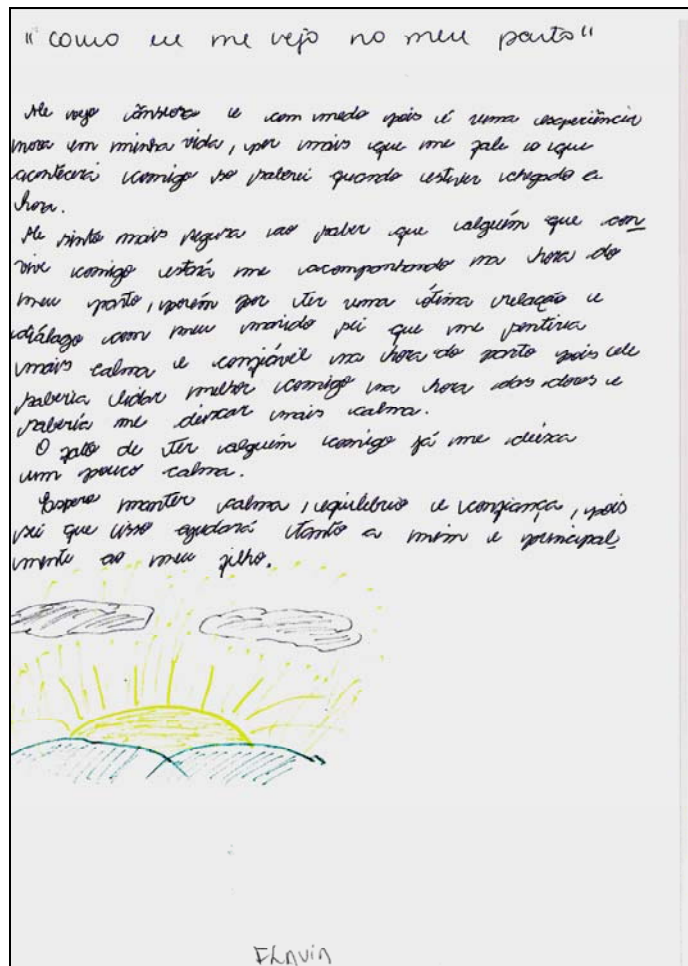 "como eu me vejo no meu parto"
Me vejo ânsiosa e com medo pois é uma experiência
nova em minha vida, por mais que me fale o que
acontecerá comigo so saberei quando estiver chegado a
hora.
Me sinto mais segura ao saber que alguém que con
vive comigo estará me acompanhando na hora do
meu parto, porém por ter uma ótima relação e
diálago com meu marido sei que me sentiria
mais calma e confiável na hora do parto pois ele
saberia lidar melhor comigo na hora das dores e
saberia me deixar mais calma.
O fato de ter alguém comigo já me deixa
um pouco calma.
Espero manter calma, equilebrio e confiança, pois
sei que isso ajudará tanto a mim e principal
mente ao meu filho.
FLAVIA